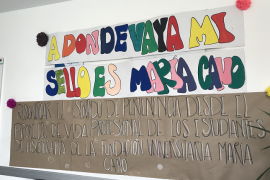 A DONDE VAYA MI
SELLO ES MARÍA CANO
SIGNIFICAR EL SENTIDO DE PERTENENCIA DESDE EL
PROYECTO DE VIDA PROFESIONAL DE LOS ESTUDIANTES
DE PSICOLOGÍA DE LA FUNDACIÓN UNIVERSITARIA MARIA
CANO